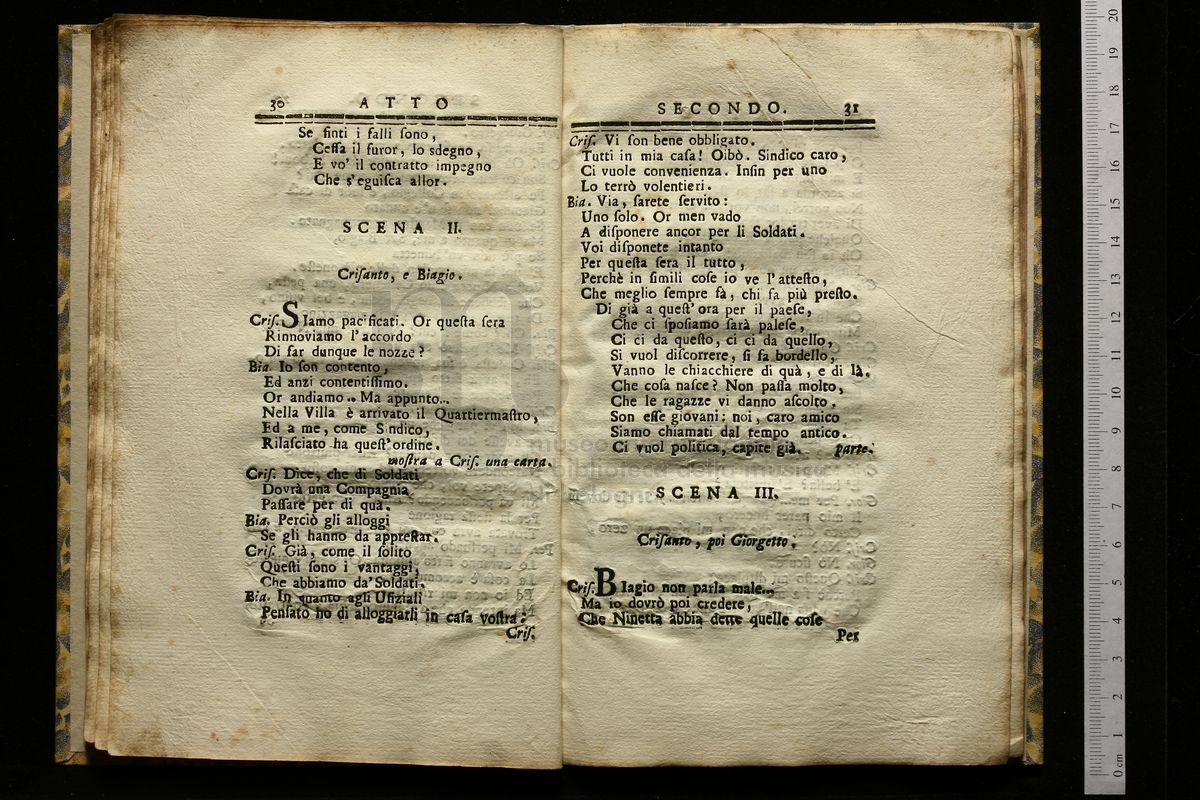 30 ATTO
Se finti i falli ſono,
Ceſſa il furor, lo sdegno,
E vo' il contratto impegno
Che s'eguiſca allor.
SCENA II.
Criſanto, e Biagio.
Criſ. SIamo pacificati. Or queſta ſera
Rinnoviamo l'accordo
Di far dunque le nozze?
Bia. Io ſon contento,
Ed anzi contentiſſimo.
Or andiamo.. Ma appunto...
Nella Villa è arrivato il Quartiermaſtro,
Ed a me, come Sindico,
Rilaſciato ha queſt'ordine.
moſtra a Criſ. una carta.
Criſ. Dice, che di Soldati
Dovrà una Compagnia
Paſſare per di quà.
Bia. Perciò gli alloggi
Se gli hanno da appreſtar.
Criſ. Già, come il ſolito
Queſti ſono i vantaggi,
Che abbiamo da' Soldati.
Bia. In quanto agli Ufiziali
Penſato ho di alloggiarli in caſa voſtra:
Criſ.
SECONDO. 31
Criſ. Vi ſon bene obbligato.
Tutti in mia caſa! Oibò. Sindico caro,
Ci vuole convenienza. Inſin per uno
Lo terrò volentieri.
Bia. Via, ſarete ſervito:
Uno ſolo. Or men vado
A diſponere ancor per li Soldati.
Voi diſponete intanto
Per queſta ſera il tutto,
Perchè in ſimili coſe io ve l'atteſto,
Che meglio ſempre fà, chi fa più preſto.
Di già a queſt'ora per il paeſe,
Che ci ſpoſiamo ſarà paleſe,
Ci ci da queſto, ci ci da quello,
Si vuol diſcorrere, ſi fa bordello,
Vanno le chiacchiere di quà, e di là.
Che coſa naſce? Non paſſa molto,
Che le ragazze vi danno aſcolto.
Son eſſe giovani: noi, caro amico
Siamo chiamati dal tempo antico.
Ci vuol politica, capite già. parte.
SCENA III.
Criſanto, poi Giorgetto.
Criſ. BIagio non parla male...
Ma io dovrò poi credere,
Che Ninetta abbia dette quelle coſe
Per
museo
biblioteca della musica
20
19
18
17
16
15
14
13
12
11
10
9
8
7
6
5
4
3
2
1
0 cm